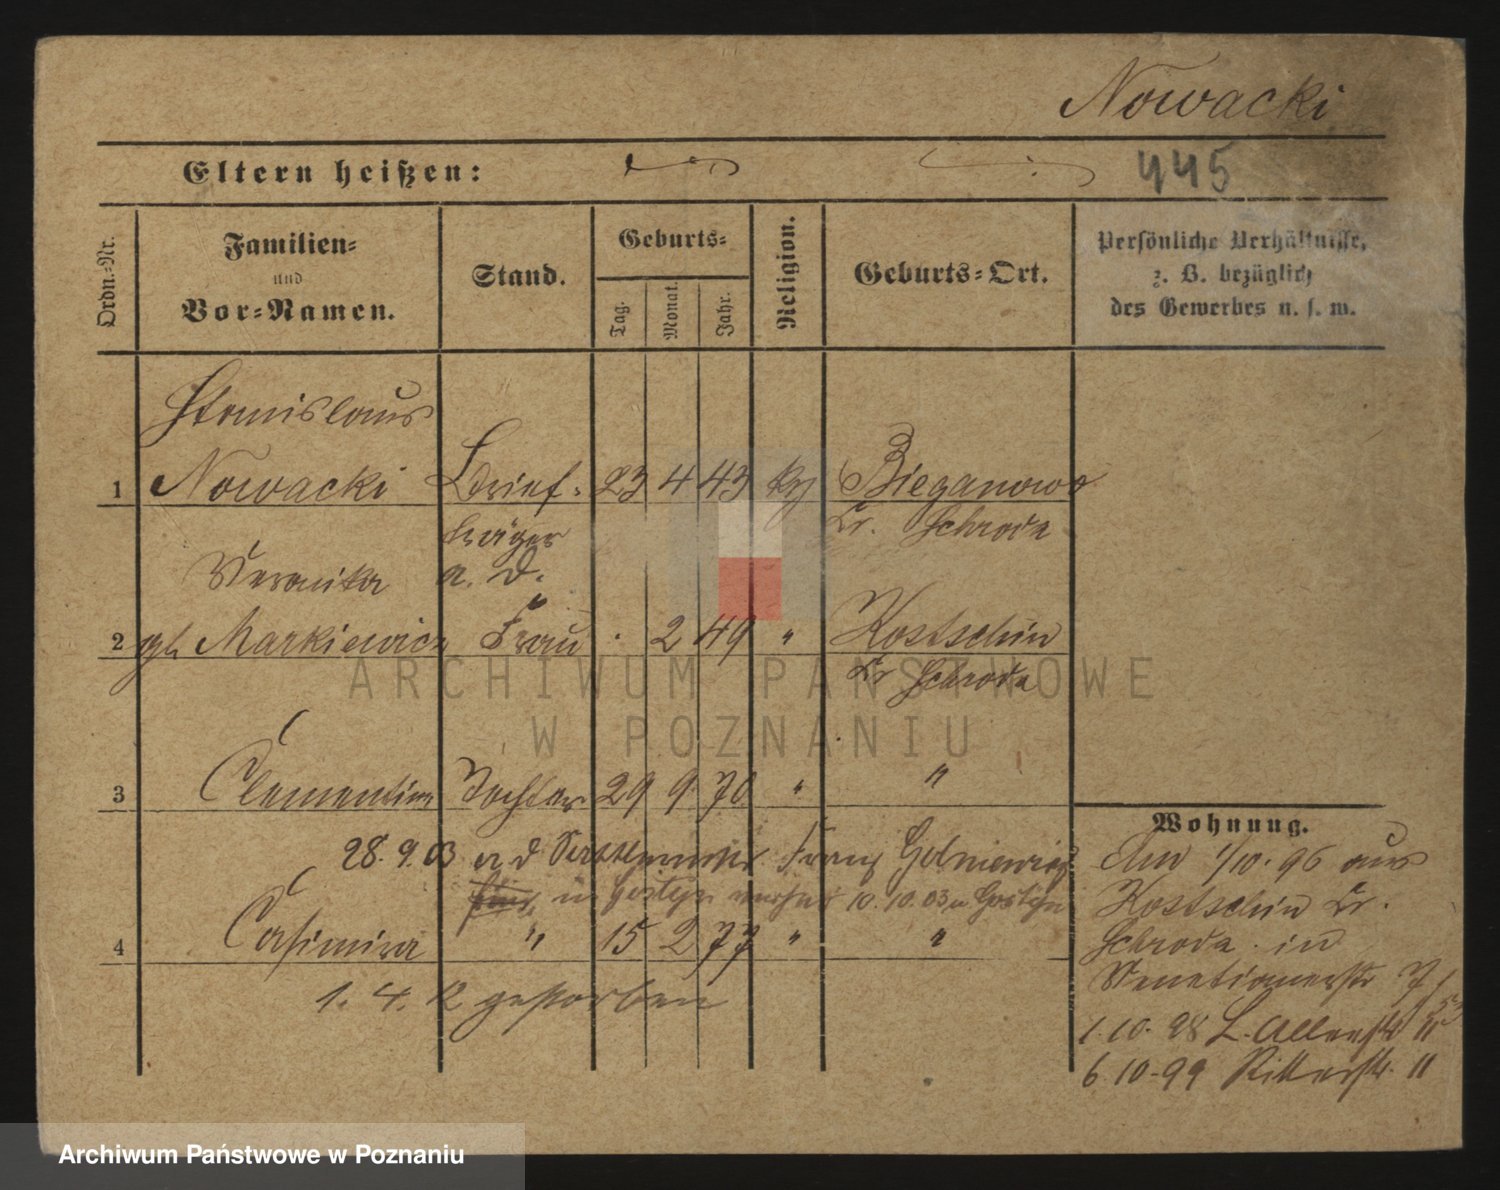 Nowacki
Eltern heißen:
445
Ordn.=Nr.
Familien=
und
Vor=Namen.
Stand.
Geburts=
Tag.
Monat.
Jahr.
Religion.
Geburts=Ort.
Persönliche Verhältnisse,
z. B. bezüglich
des Gewerbes u. s. w.
Stanislaus
1 Nowacki Brief- 23 4 43 Bieganowo
träger Kr. Schroda
a. D.
Veronika
2 gb Markiewicz Frau 2 49 " Kostschin
Kr Schroda
3 Clementine Tochter 29 9 70 " "
28. 9. 03 Franz
in 10. 10. 03
4 Casimira " 15 2 77 " "
1. 4. 12 gestorben
Wohnung.
Am 1/10. 96 aus
Kostschin Kr.
Schroda in
Venetianerstr 7
1. 10. 98
6. 10. 99 Ritterstr. 11
ARCHIWUM PAŃSTWOWE
W POZNANIU
Archiwum Państwowe w Poznaniu